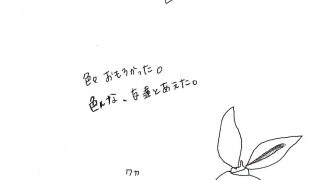 色々おもろかった。
色んな、な垂とあえた。
ワカ